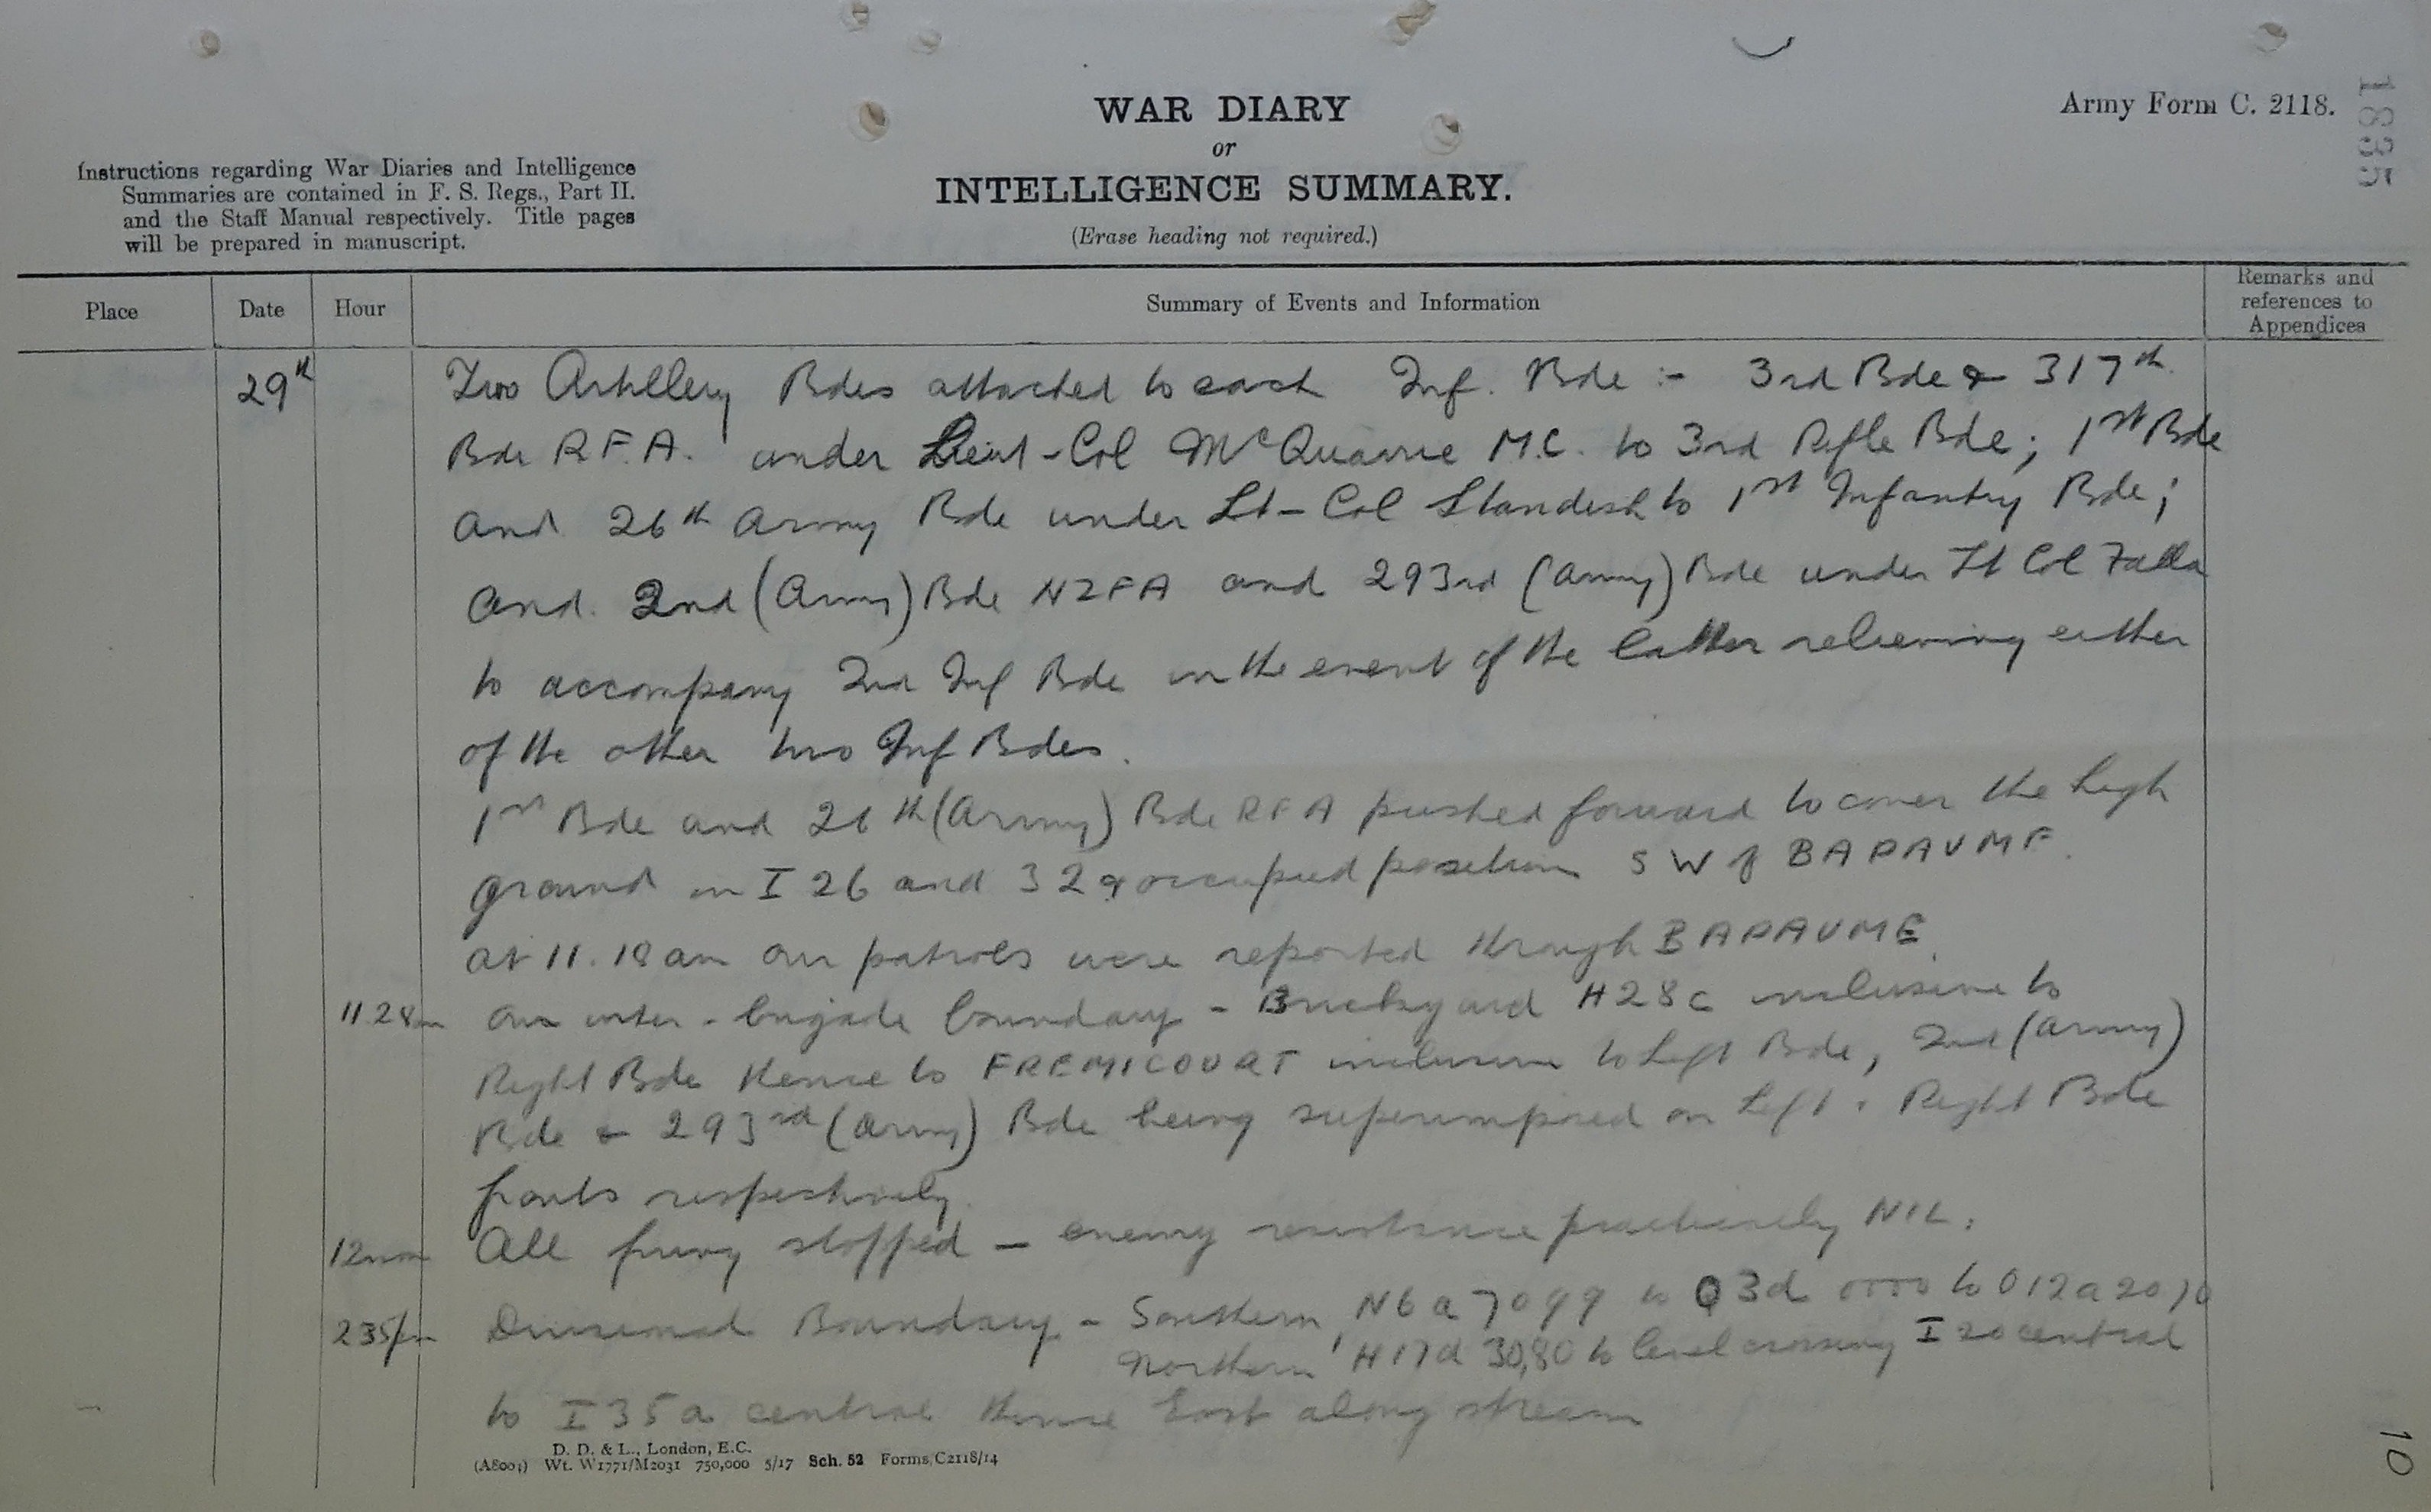 WAR DIARY
or
INTELLIGENCE SUMMARY.
(Erase heading not required.)
Army Form C. 2118.
1835
Instructions regarding War Diaries and Intelligence
Summaries are contained in F. S. Regs., Part II.
and the Staff Manual respectively. Title pages
will be prepared in manuscript.
Place Date Hour Summary of Events and Information Remarks and
references to
Appendices
29th Two Artillery Bdes attached to each Inf. Bde :- 3rd Bde & 317th
Bde R.F.A. under Lieut-Col McQuarrie M.C. to 3rd Rifle Bde; 1st Bde
and 26th Army Bde under Lt-Col Standish to 1st Infantry Bde;
and 2nd (Army) Bde NZFA and 293rd (Army) Bde under Lt Col Falla
to accompany 2nd Inf Bde in the event of the latter relieving either
of the other two Inf Bdes.
1st Bde and 26th (Army) Bde RFA pushed forward to cover the high
ground in I 26 and 32 & occupied position SW of BAPAUME.
at 11.18 am our patrols were reported through BAPAUME.
11.28am inter-brigade boundary - Brickyard H28c inclusive to
Right Bde thence to FREMICOURT inclusive to Left Bde, 2nd (Army)
Bde & 293rd (Army) Bde being superimposed on Left & Right Bde
fronts respectively.
12noon All firing stopped - enemy resistance practically NIL.
235pm Divisional Boundary - Southern, N6a7099 to O3d 0000 to O12a2070
Northern H17d 30,80 to level crossing I 20 central
to I 35 a central thence East along stream
D. D. & L., London, E.C.
(A8001) Wt. W1771/M2031 750,000 5/17 Sch. 52 Forms/C2118/14
10